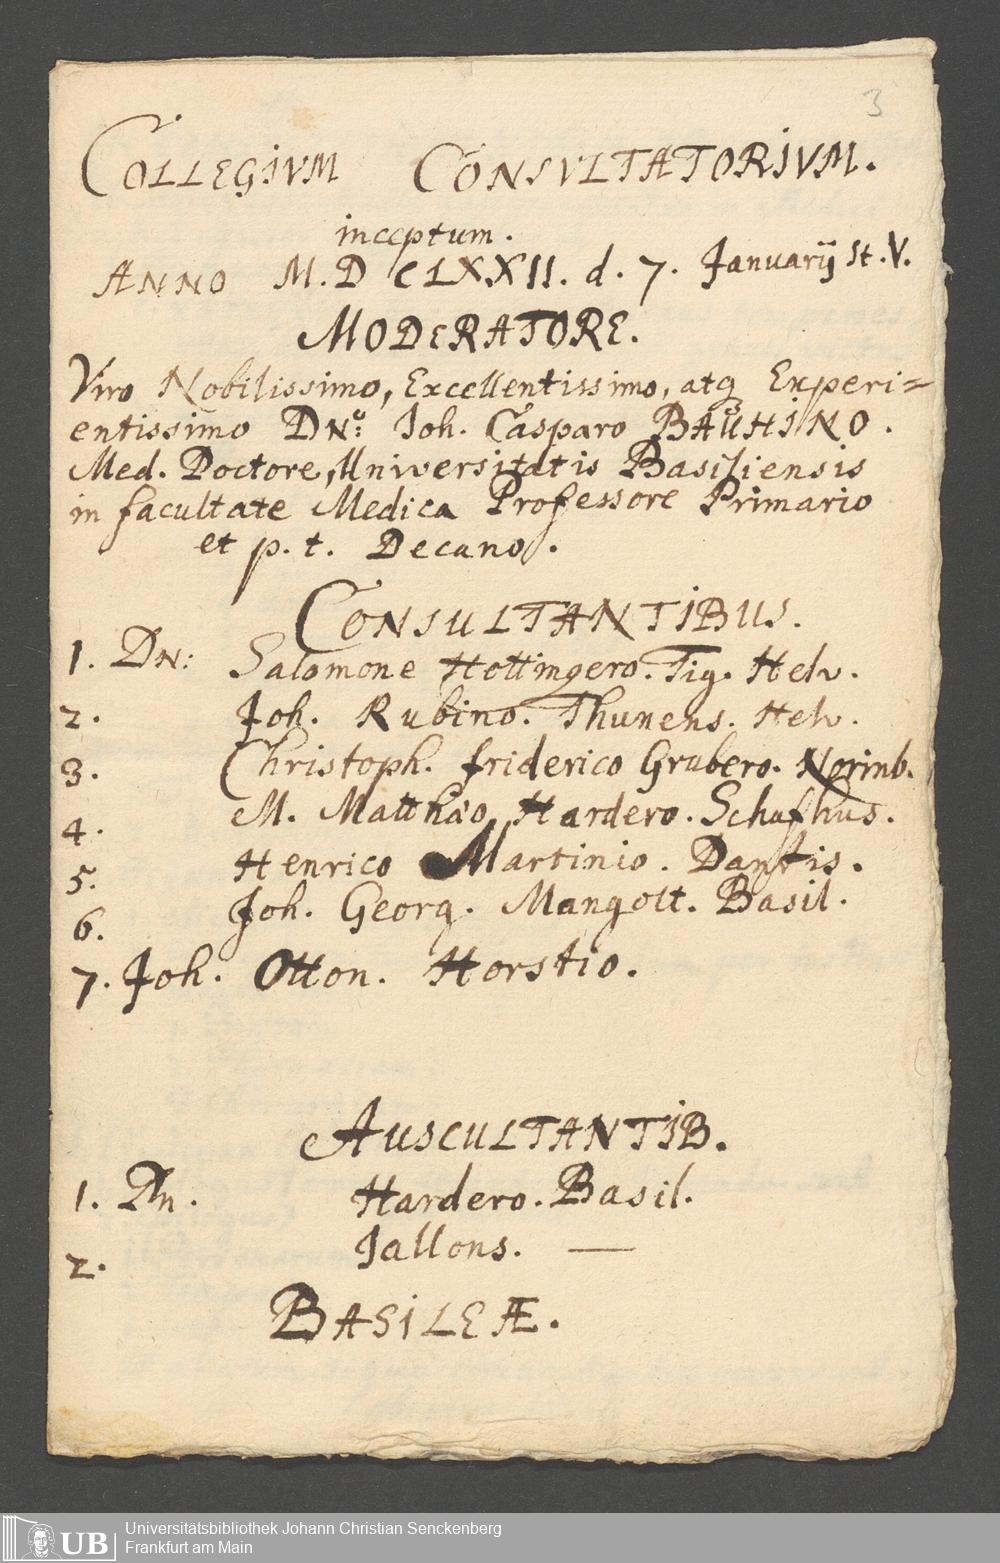 3
COLLEGIVM CONSVLTATORIVM.
inceptum.
ANNO M.D CLXXII. d. 7. Januarij St. V.
MODERATORE.
Viro Nobilissimo, Excellentissimo, atq Experi=
entissimo DNo: Joh. Casparo BAUHINO.
Med. Doctore, Universitatis Basiliensis
in facultate Medica Professore Primario
et p. t. Decano.
CONSULTANTIBUS.
1. DN: Salomone Hottingero. Tig. Helv.
2. Joh. Rubino. Thunens. Helv.
3. Christoph. friderico Grubero. Norimb.
4. M. Matthæo Hardero. Schafhus.
5. Henrico Martinio. Dantis.
6. Joh. Georg. Mangolt. Basil.
7. Joh. Otton. Horstio.
AUSCULTANTIB.
1. Dn. Hardero. Basil.
2. Jallons. —
BASILEÆ.
UB
Universitätsbibliothek Johann Christian Senckenberg
Frankfurt am Main